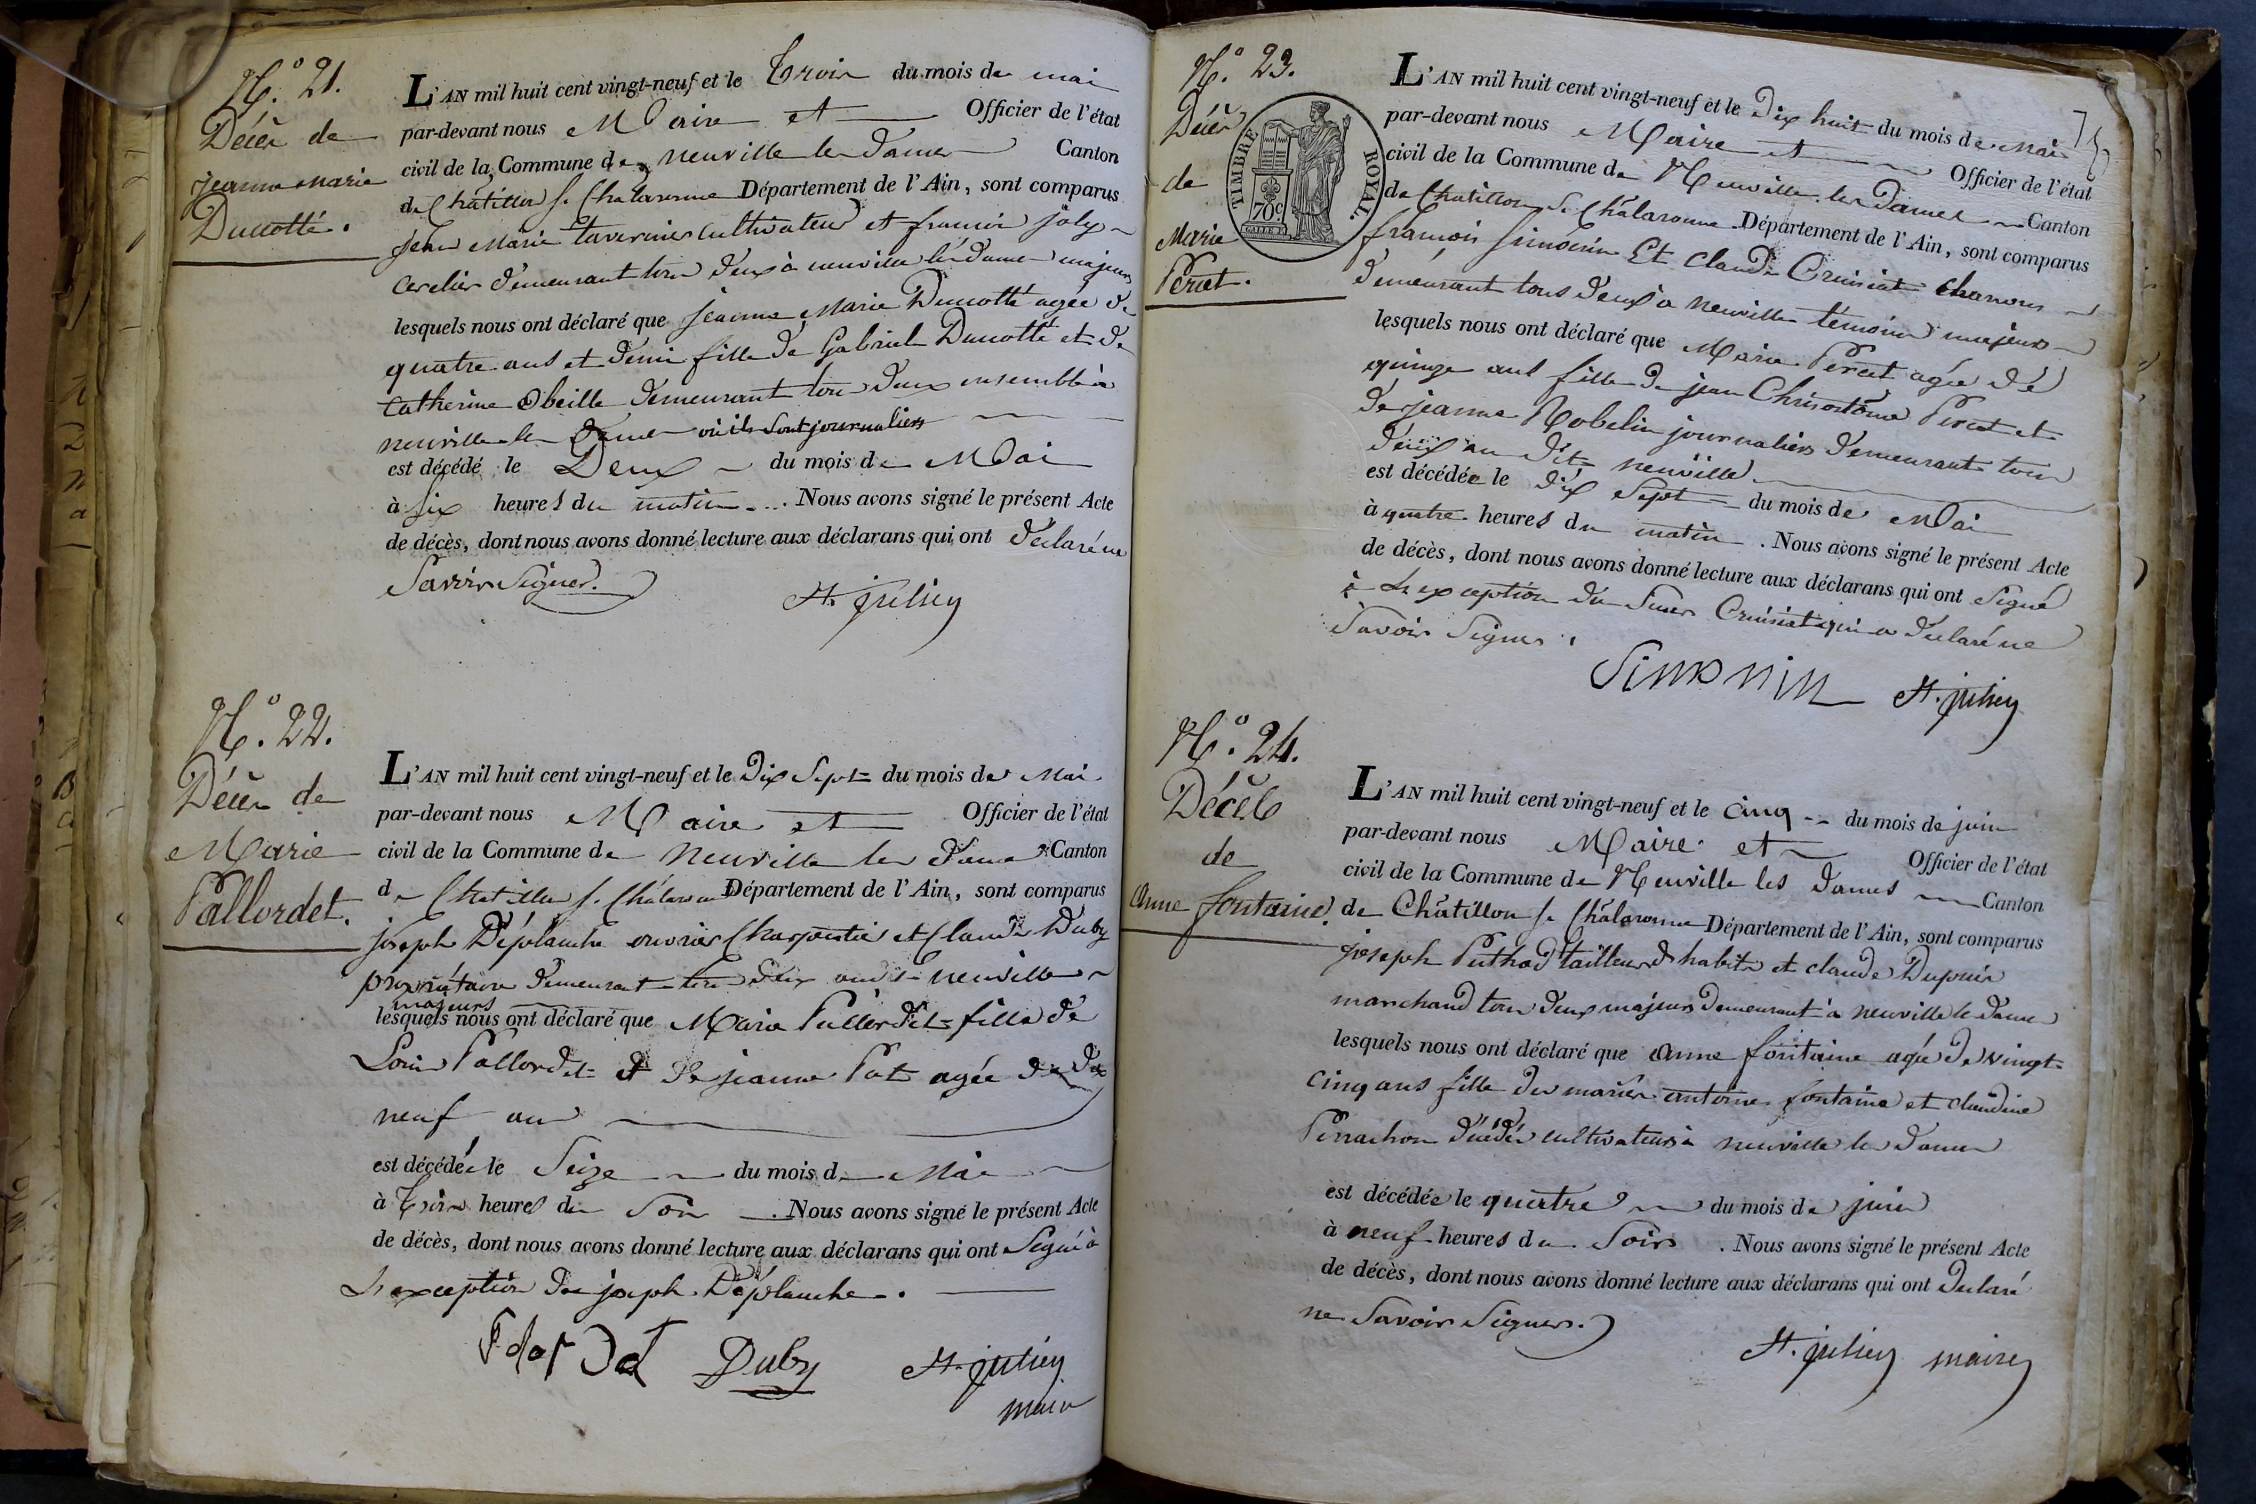 N.° 21.
Décès de
Jeanne Marie
Ducotté.
L'AN mil huit cent vingt-neuf et le Trois du mois de mai
par-devant nous Maire et Officier de l'état
civil de la Commune de neuville les dames Canton
de Châtillon s. Chalaronne Département de l'Ain, sont comparus
jean Marie tavernier cultivateur et francois joly
cerclier demeurant tous deux à neuville les dames majeurs
lesquels nous ont déclaré que jeanne Marie Ducotté agée de
quatre ans et demi fille de Gabriel Ducotté et de
Catherine Obeille demeurant tous deux ensemble à
neuville les dames où ils sont journaliers
est décédé le Deux du mois de Mai
à six heures du matin. Nous avons signé le présent Acte
de décès, dont nous avons donné lecture aux déclarans qui ont declaré ne
Savoir Signer.
St. julien
N.° 22.
Décès de
Marie
Pallordet.
L'AN mil huit cent vingt-neuf et le Dix Sept du mois de Mai
par-devant nous Maire et Officier de l'état
civil de la Commune de Neuville les dames Canton
de Chatillon s. Châlaronne Département de l'Ain, sont comparus
joseph Déplanche ouvrier Charpentier et Claude Duby
propriétaire demeurant tous deux audit neuville
majeurs
lesquels nous ont déclaré que Marie Pallordet fille de
Louis Pallordet et de jeanne Pat agée de dix
neuf ans
est décédée le Seize du mois de Mai
à trois heures du Soir. Nous avons signé le présent Acte
de décès, dont nous avons donné lecture aux déclarans qui ont Signé à
L'exception de joseph Déplanche.
Duby St. julien
maire
N.° 23.
Décès
de
Marie
Percet.
TIMBRE ROYAL
70c
L'AN mil huit cent vingt-neuf et le Dix huit du mois de Mai
par-devant nous Maire et Officier de l'état
civil de la Commune de Neuville les dames Canton
de Chatillon s. Châlaronne Département de l'Ain, sont comparus
françois Simonin Et Claude Cruisiat
demeurant tous deux à neuville temoins majeurs
lesquels nous ont déclaré que Marie Percet agée de
quinze ans fille de jean Chrisostôme Percet et
de jeanne Robelin journaliers demeurants tous
deux au dit neuville
est décédée le dix Sept du mois de Mai
à quatre heures du matin. Nous avons signé le présent Acte
de décès, dont nous avons donné lecture aux déclarans qui ont Signé
à L'exception du Sieur Cruisiat qui a declaré ne
Savoir Signer.
Simonin St. julien
N.° 24.
Décès
de
Anne fontaine.
L'AN mil huit cent vingt-neuf et le cinq du mois de juin
par-devant nous Maire et Officier de l'état
civil de la Commune de Neuville les dames Canton
de Châtillon s. Châlaronne Département de l'Ain, sont comparus
joseph Puthod tailleur d'habits et claude Dupuis
marchand tous deux majeurs demeurant à neuville les dames
lesquels nous ont déclaré que Anne fontaine agée de vingt
cinq ans fille des mariés antoine fontaine et claudine
Perrachon décédés cultivateurs à neuville les dames
est décédée le quatre du mois de juin
à neuf heures du Soir. Nous avons signé le présent Acte
de décès, dont nous avons donné lecture aux déclarans qui ont declaré
ne Savoir Signer.
St. julien maire